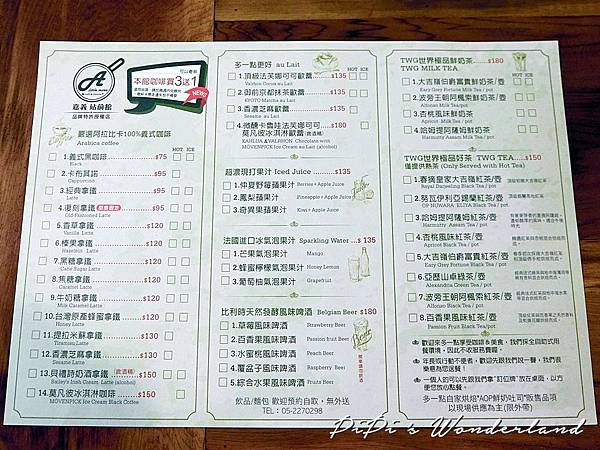 A
嘉義 站前館
品牌特許授權店
可以寄杯
本館咖啡買3送1
NEWS
嚴選阿拉比卡100%義式咖啡
Arabica coffee
HOT ICE
1.義式黑咖啡 $75
Black
2.卡布其諾 $95
Cappuccino
3.經典拿鐵 $95
Latte
4.復刻拿鐵 $95
Old-Fashioned Latte
5.香草拿鐵 $120
Vanilla Latte
6.榛果拿鐵 $120
Hazelnut Latte
7.黑糖拿鐵 $120
Cane Sugar Latte
8.焦糖拿鐵 $120
Caramel Latte
9.牛奶糖拿鐵 $120
Milk Caramel Latte
10.台灣原產蜂蜜拿鐵 $120
Honey Latte
11.提拉米蘇拿鐵 $130
Tiramisu Latte
12.香濃芝麻拿鐵 $130
Sesame Latte
13.貝禮詩奶酒拿鐵(含酒精) $150
Bailey's Irish Cream. Latte (alcohol)
14.莫凡彼冰淇淋咖啡 $150
MÖVENPICK Ice Cream Black Coffee
多一點更好 au Lait
HOT ICE
1.頂級法芙娜可可歐蕾 $135
Valrhon Cocoa au Lait
2.御前京都抹茶歐蕾 $135
KYOTO Matcha au Lait
3.香濃芝麻歐蕾 $135
Sesame au Lait
4.微醺卡魯哇法芙娜可可 $180
莫凡彼冰淇淋歐蕾(含酒精)
KAHLUA &VALRHON Chocolate with
MÖVENPICK Ice Cream au Lait (alcohol)
超濃現打果汁 Iced Juice $135
1.仲夏野莓蘋果汁 Berries+Apple Juice
2.鳳梨蘋果汁 Pineapple+Apple Juice
3.奇異果蘋果汁 Kiwi+Apple Juice
法國進口冰氣泡果汁 Sparkling Water $135
1.芒果氣泡果汁 Mango
2.蜂蜜檸檬氣泡果汁 Honey Lemon
3.葡萄柚氣泡果汁 Grapefruit
比利時天然發酵風味啤酒 Belgian Beer $180
1.草莓風味啤酒 Strawberry Beer
2.百香果風味啤酒 Passionfruit Beer
3.水蜜桃風味啤酒 Peach Beer
4.覆盆子風味啤酒 Raspberry Beer
5.綜合水果風味啤酒 Fruits Beer
Beer
飲品/麵包 歡迎預約自取，無外送
TEL：05-2270298
TWG世界極品鮮奶茶 $180
TWG MILK TEA
HOT ICE
1.大吉嶺伯爵富貴鮮奶茶/壺
Eary Grey Fortune Milk Tea/pot
2.波旁王朝阿楓索鮮奶茶/壺
Alfonso Black Milk Tea/pot
3.杏桃風味鮮奶茶/壺
Apricot Milk Tea / pot
4.哈姆提阿薩姆鮮奶茶/壺
Harmutty Assam Milk Tea/pot
TWG世界極品好茶 TWG TEA $150
僅提供熱茶 (Only Served with Hot Tea)
1.春摘皇家大吉嶺紅茶/壺
Royal Darjeeling Black Tea/pot
2.努瓦伊利亞錫蘭紅茶/壺
OP NUWARA ELIYA Black Tea / pot
3.哈姆提阿薩姆紅茶/壺
Harmutty Assam Tea / pot
4.杏桃風味紅茶/壺
Apricot Black Tea / pot
5.大吉嶺伯爵富貴紅茶/壺
Eary Grey Fortune Black Tea/pot
6.亞歷山卓綠茶/壺
Alexandria Green Tea / pot
7.波旁王朝阿楓索紅茶/壺
Alfonso Black Tea/pot
8.百香果風味紅茶/壺
Passion Fruit Black Tea/pot
歡迎來多一點享受咖啡&美食，我們採全自助式用
餐環境，因此不收服務費囉。
年長或行動不便者，歡迎先跟我們說一聲，我們很
樂意為您送餐！
一個人的可以先跟我們拿"訂位牌"放在桌面，以方
便您放心點餐。
多一點自家烘焙"AOP鮮奶吐司"販售品項
以現場供應為主(限外帶)
PiPi's Wonderland